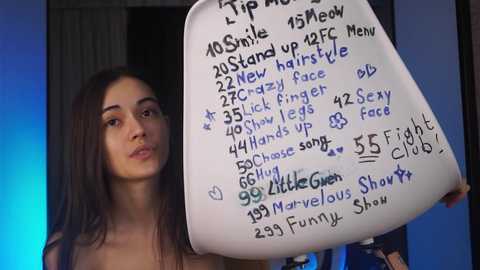 Tip Menu
10 Smile 15 Meow
20 Stand up 12 FC Menu
22 New hairstyle
27 Crazy face
35 Lick finger
40 Show legs 42 Sexy face
44 Hands up
59 Choose song 55 Fight club!
66 Hug
99 Little Gwen
199 Marvelous Show
299 Funny Show